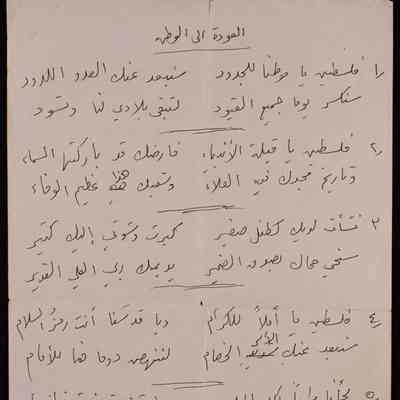 العودة الى الوطن
١/ فلسطين يا موطناً للجدود سنبعد عنك العدو اللدود
سنكسر يوما جميع القيود لتبقى بلادي لنا وتسود
٢/ فلسطين يا قبلة الأنبياء فأرضك قد باركتها السماء
وتاريخ مجدك فيه العلاء وشعبك هذا عظيم الوفاء
٣ نشأت لديك كطفل صغير كبرت وشوقي إليك كثير
بصدق الضمير يديمك ربي العلي القدير
٤/ فلسطين يا أملاً للكرام ويا قدسنا أنت رمز السلام
سنبعد عنك الخصام لننهض دوما هنا للأمام